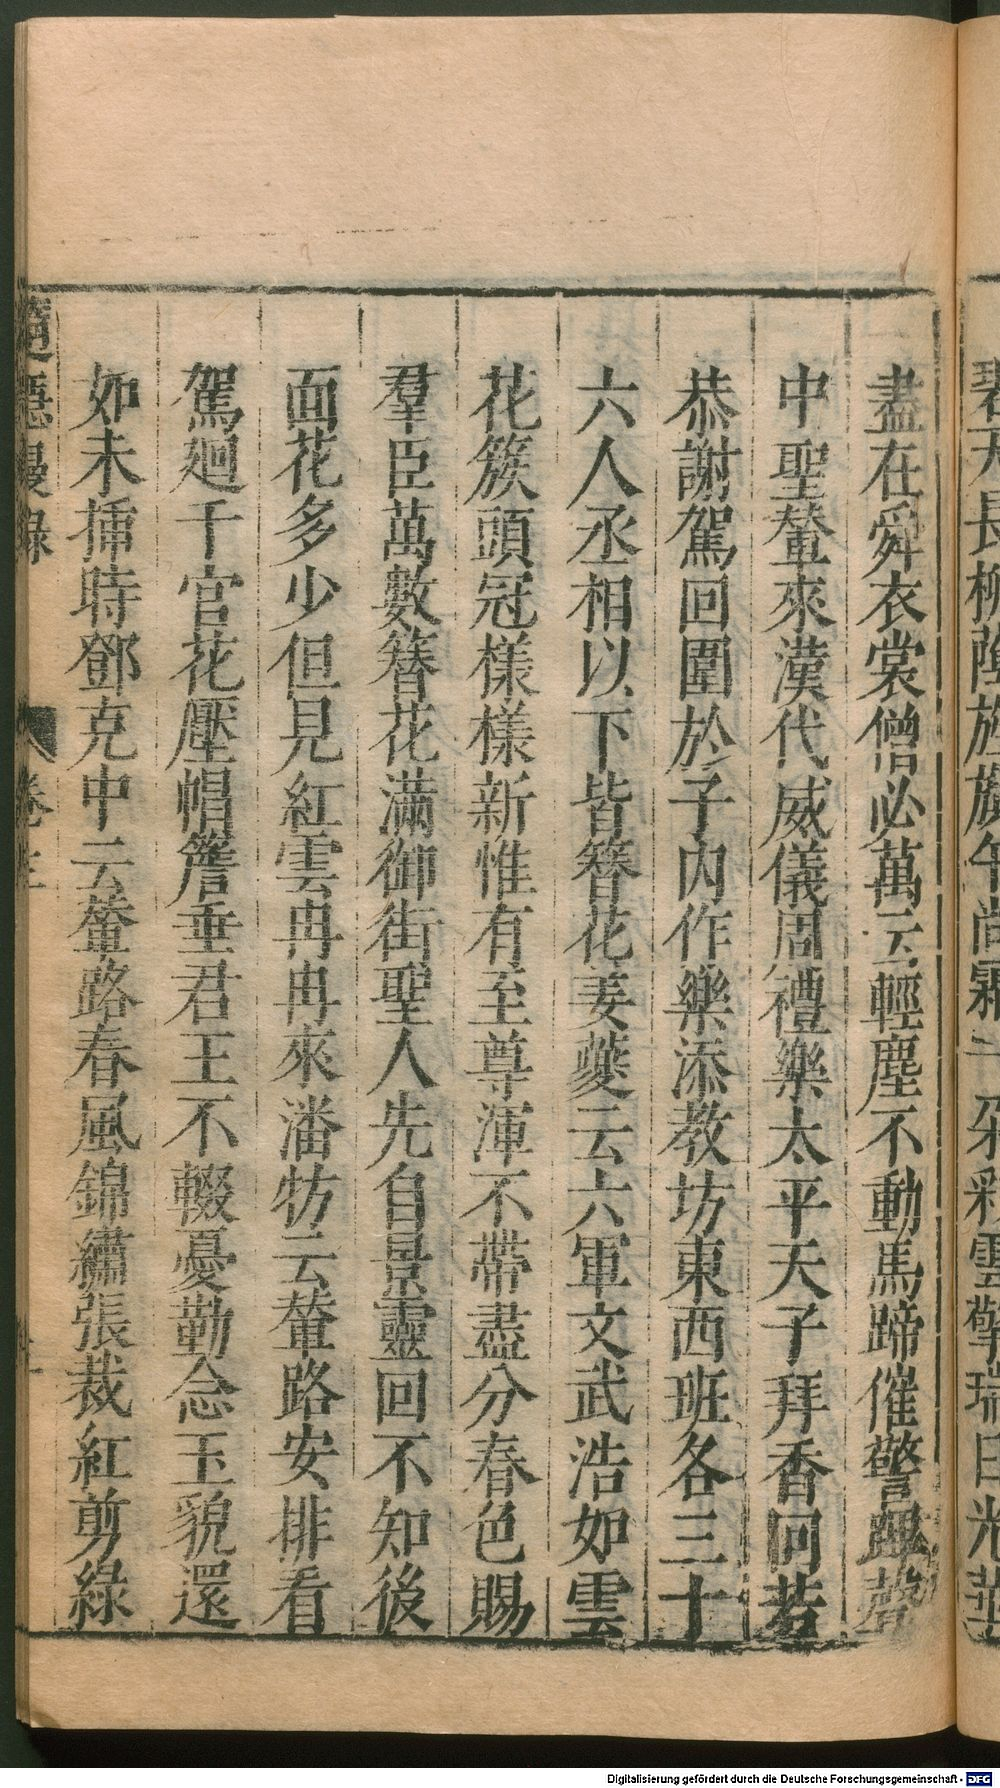 盡在舜衣裳僧必萬云輕塵不動馬蹄催警蹕聲
中聖輦來漢代威儀周禮樂太平天子拜香回若
恭謝駕回圍於子内作樂添教坊東西班各三十
六人丞相以下皆簪花姜夔云六軍文武浩如雲
花簇頭冠樣樣新惟有至尊渾不帶盡分春色賜
羣臣萬數簪花滿御街聖人先自景靈回不知後
面花多少但見紅雲冉冉來潘牥云輦路安排看
駕廻千官花壓帽簷垂君王不輟憂勤念玉貌還
如未插時鄧克中云輦路春風錦繡張裁紅剪綠
隨隱漫錄 卷三
Digitalisierung gefördert durch die Deutsche Forschungsgemeinschaft - DFG